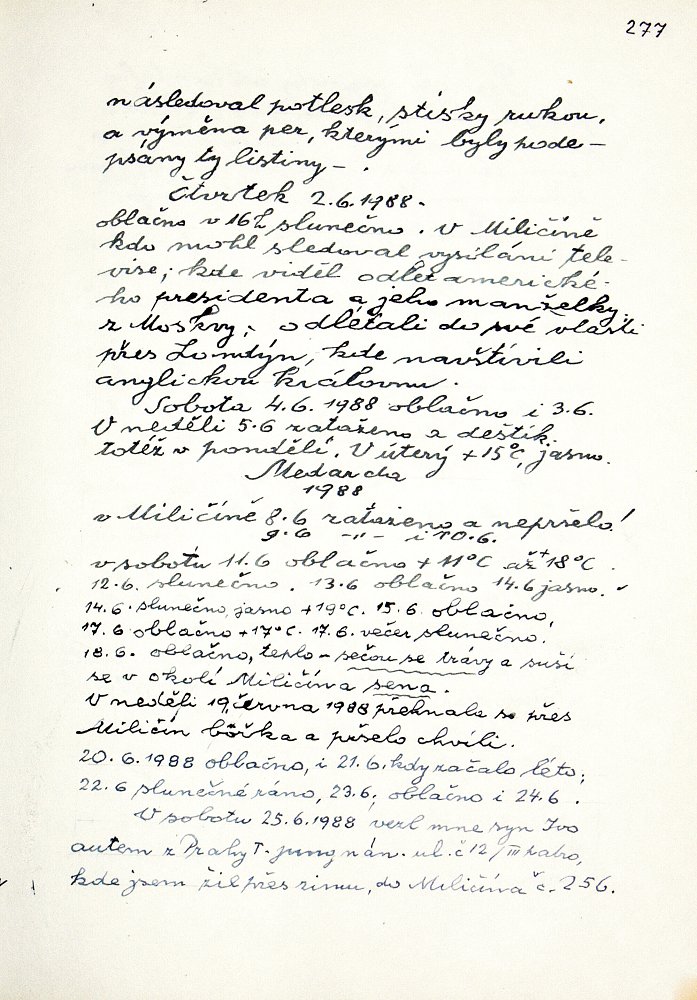 277
následoval potlesk, stisky rukou,
a výměna per, kterými byly pode-
psány ty listiny - .
Čtvrtek 2.6.1988.
oblačno v 16h slunečno. V Miličíně
kdo mohl sledoval vysílání tele-
vise; kde viděl odlet americké-
ho presidenta a jeho manželky
z Moskvy; odlétali do své vlasti
přes Londýn, kde navštívili
anglickou královnu.
Sobota 4.6. 1988 oblačno i 3.6.
V neděli 5.6 zataženo a deštík.
totéž v pondělí. V úterý +15°C, jasno.
Medarda
1988
v Miličíně 8.6 zataženo a nepršelo!
9.6 -"- i 10.6.
v sobotu 11.6 oblačno +11°C až +18°C.
12.6. slunečno. 13.6 oblačno 14.6 jasno.
14.6. slunečno, jasno +19°C. 15.6. oblačno,
17.6 oblačno +17°C. 17.6. večer slunečno.
18.6. oblačno, teplo - sečou se trávy a suší
se v okolí Miličína sena.
V neděli 19. června 1988 přehnala se přes
Miličín bouřka a pršelo chvíli.
20.6.1988 oblačno, i 21.6. kdy začalo léto;
22.6 slunečné ráno, 23.6; oblačno i 24.6.
V sobotu 25.6.1988 vezl mne syn Ivo
autem z Prahy 7. jungnán. ul. č 12/III
kde jsem žil přes zimu, do Miličína č. 256.